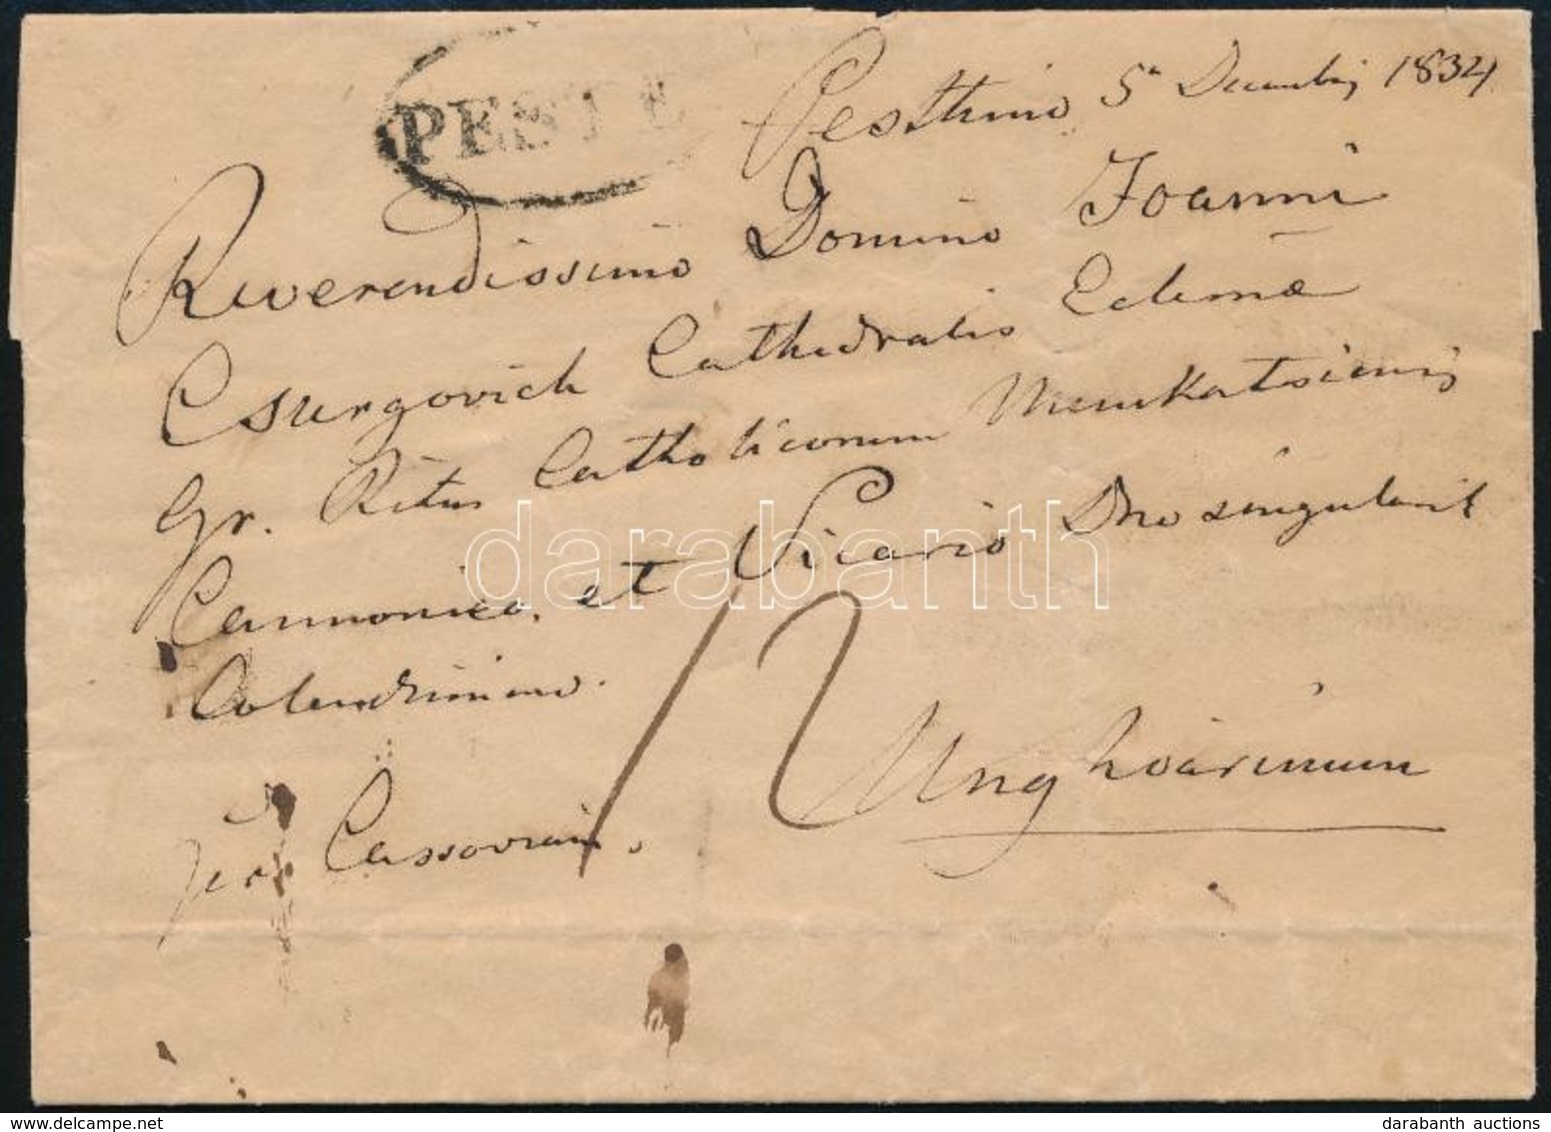 PESTE
Pesthino 5a Decembris 1834
Reverendissimo Domino Joanni
Csurgovich Cathedralis Eclesiæ
Gr. Ritus Catholicorum Munkatsiensis
Cannonico, et Vicario Dno singulariter
Colendissimo.
12
Unghvarinum
per Cassoviam.
darabanth
darabanth auctions